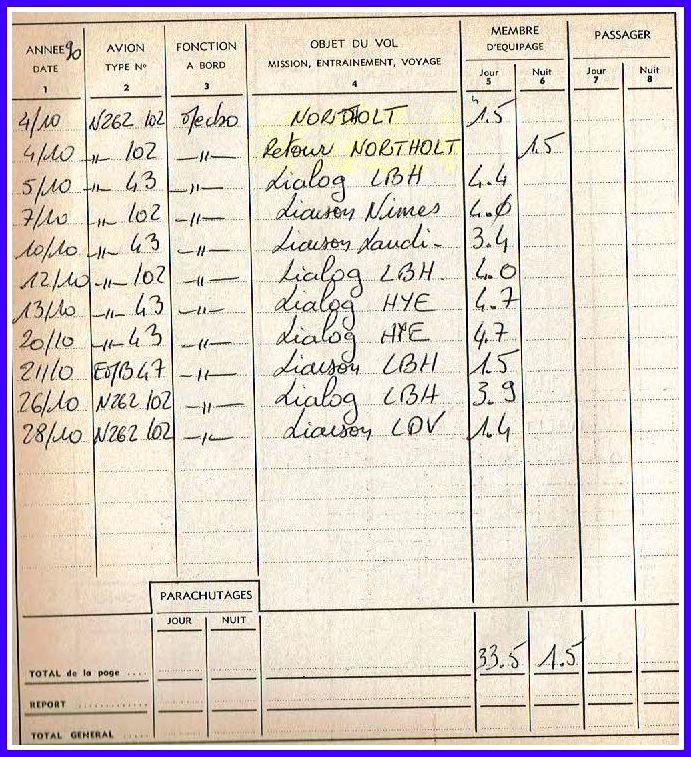 ANNEE 90 AVION FONCTION OBJET DU VOL MEMBRE D'EQUIPAGE PASSAGER
DATE TYPE N° A BORD MISSION, ENTRAINEMENT, VOYAGE Jour Nuit Jour Nuit
1 2 3 4 5 6 7 8
4/10 N262 102 Mecbo NORTHOLT 1.5
4/10 -"- 102 -"- Retour NORTHOLT 1.5
5/10 -"- 43 -"- Dialog LBH 4.4
7/10 -"- 102 -"- Liaison Nimes 4.0
10/10 -"- 43 -"- Liaison Landi- 3.4
12/10 -"- 102 -"- Dialog LBH 4.0
13/10 -"- 43 -"- Dialog HYE 4.7
20/10 -"- 43 -"- Dialog HYE 4.7
21/10 47 -"- Liaison LBH 1.5
26/10 N262 102 -"- Dialog LBH 3.9
28/10 N262 102 -"- Liaison LDV 1.4
PARACHUTAGES
JOUR NUIT
TOTAL de la page .... 33.5 1.5
REPORT ....
TOTAL GENERAL ....